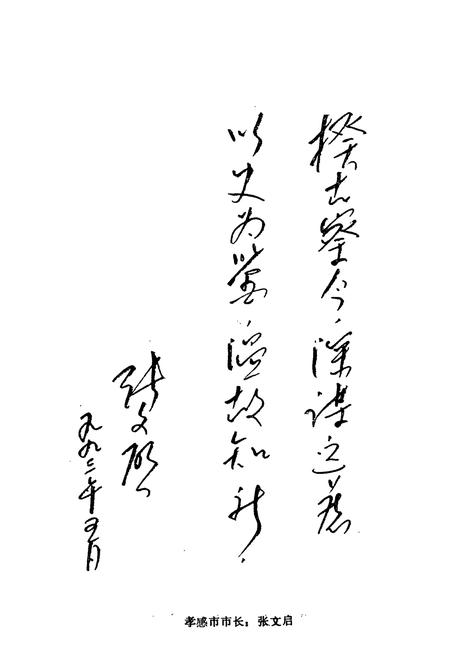 揆古察今，深谋远虑
以史为鉴，温故知新．
张文启
一九九二年五月
孝感市市长：张文启